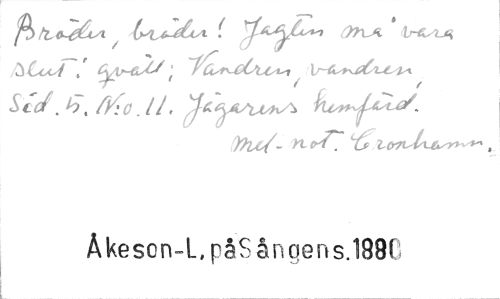 Bröder, bröder! Jagten må vara
slut i qväll; Vandren, vandren,
Sid. 5. N:o. 11. Jägarens hemfärd.
Mel-not. Cronhamn.
Åkeson-L.påSångens.1880